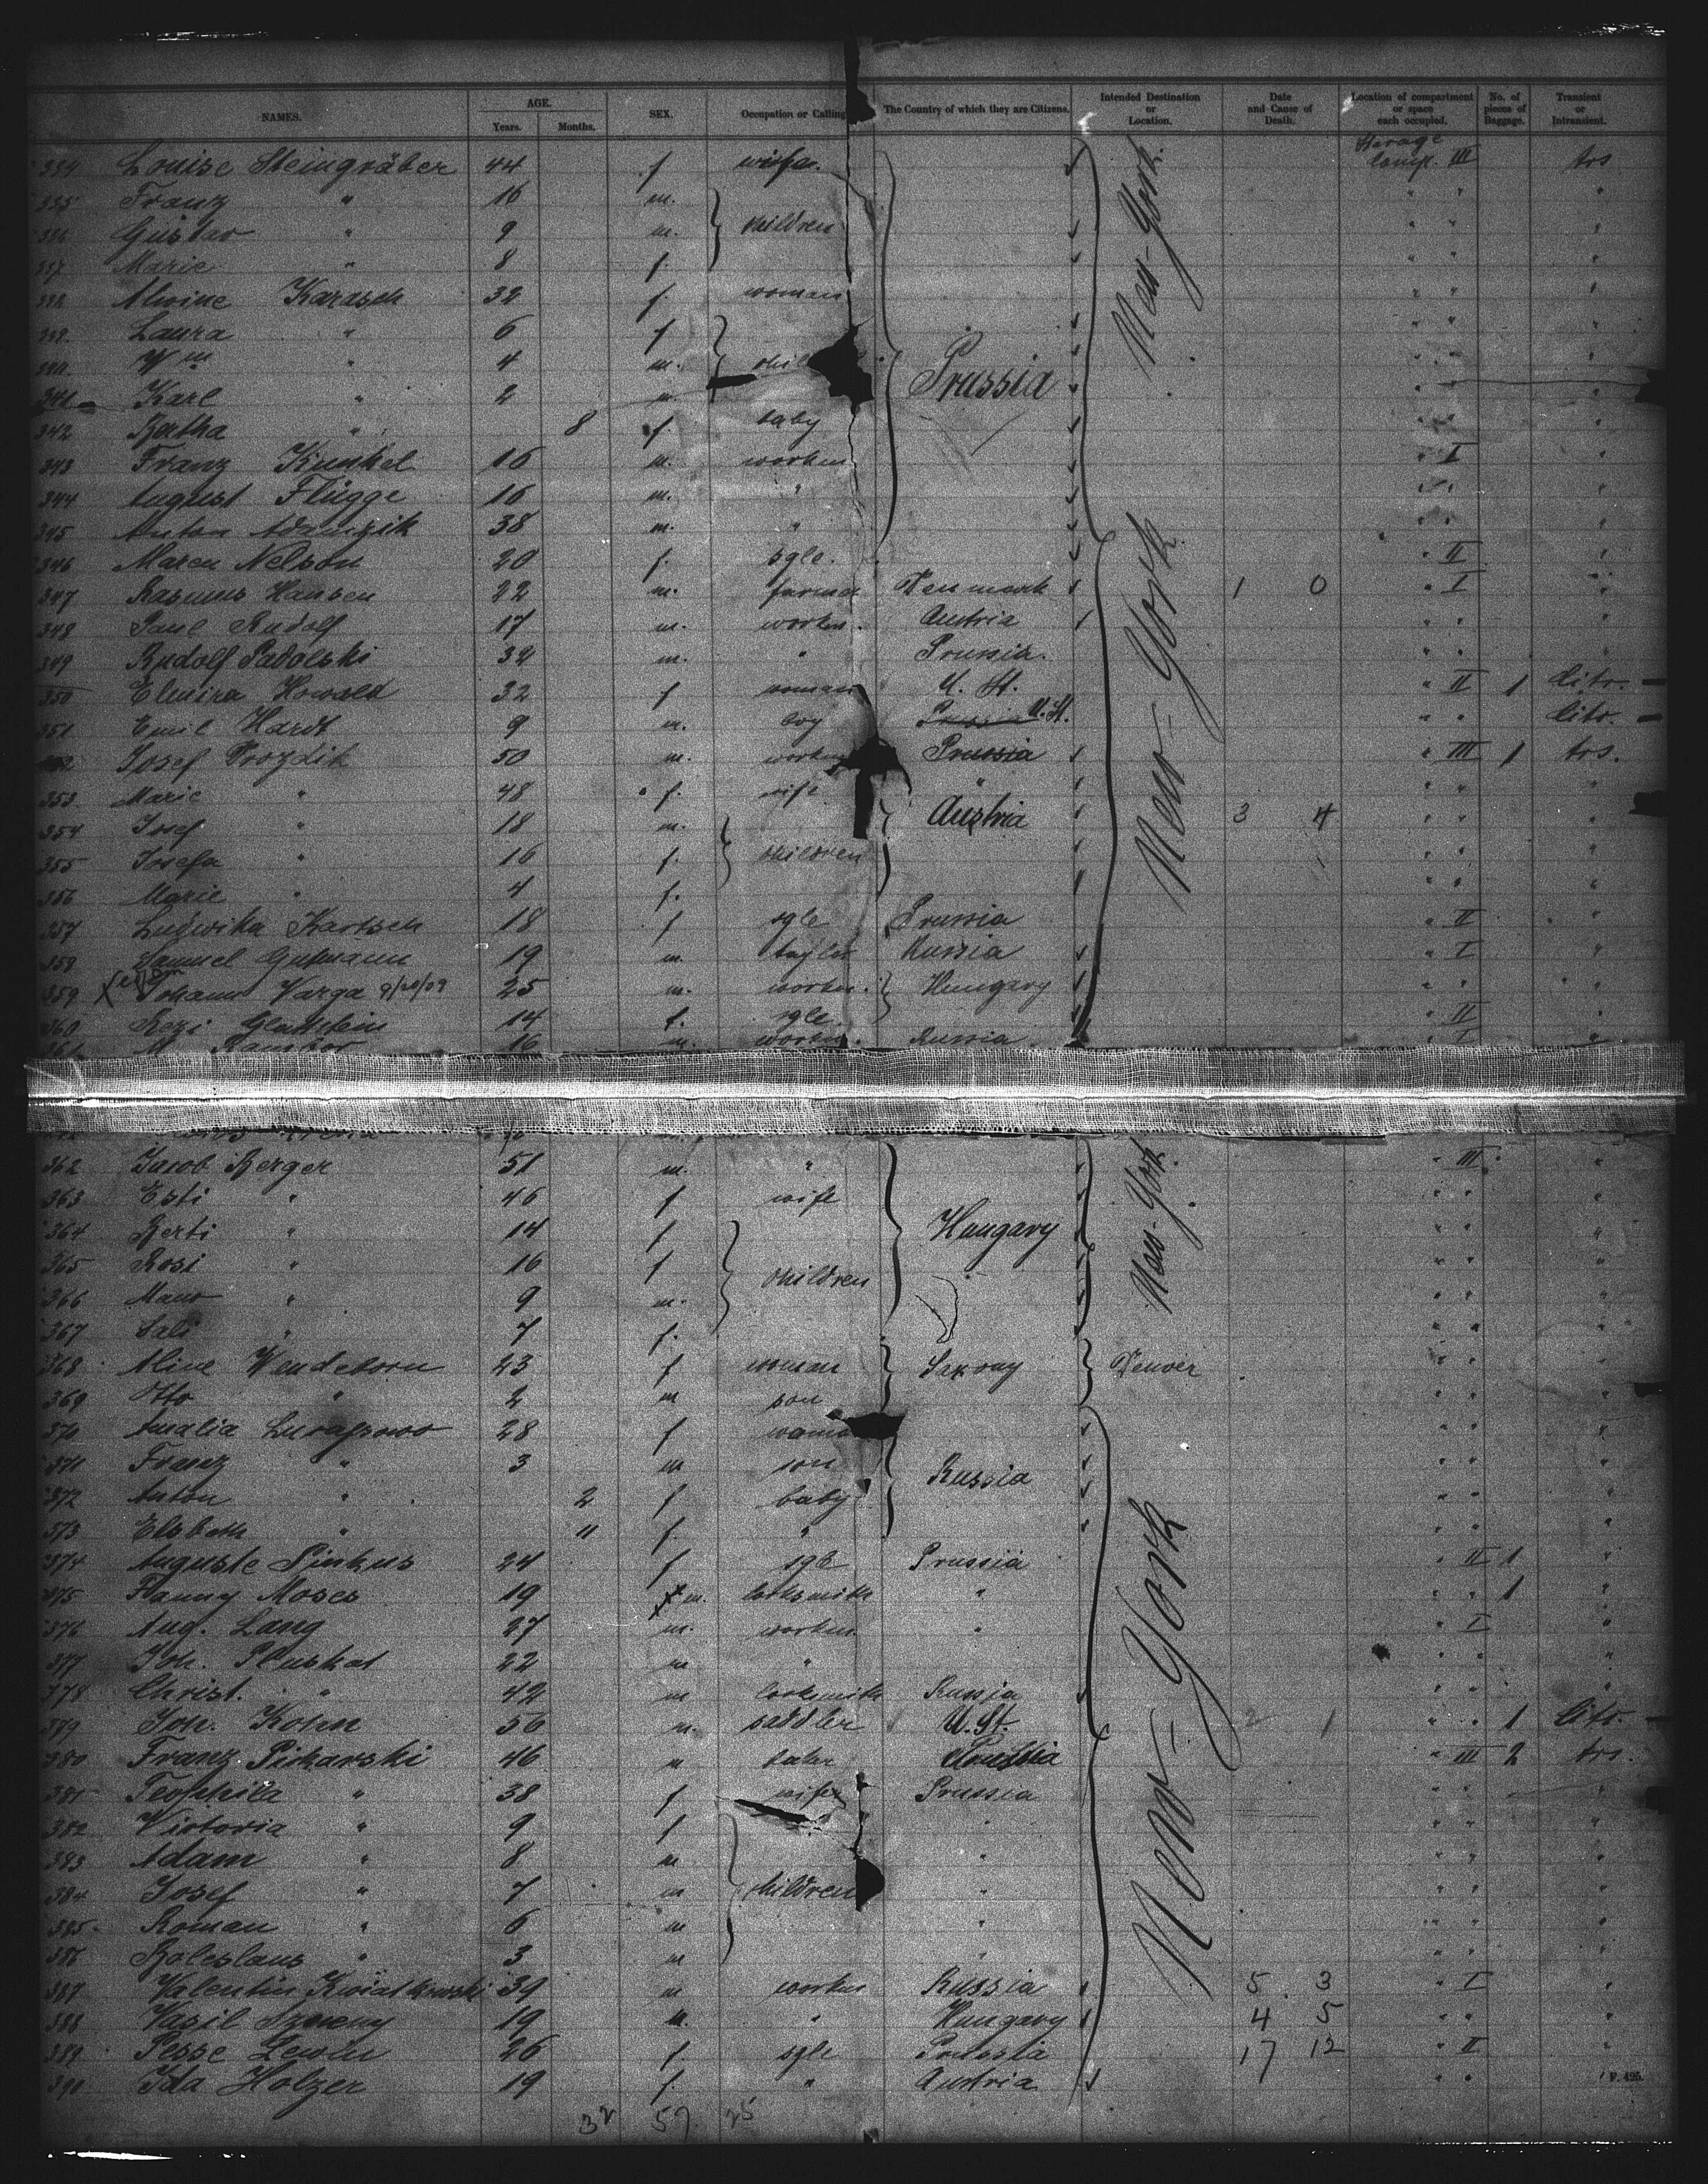 NAMES. AGE. Years. Months. SEX. Occupation or Calling The Country of which they are Citizens. Intended Destination or Location. Date and Cause of Death. Location of compartment or space each occupied. No. of pieces of Baggage. Transient or Intransient.
334 Louise Steingräber 44 f wife. Sterage Comp. III trs
335 Franz " 16 m. " " "
336 Gustav " 9 m. children " " "
337 Marie " 8 f. " " "
338 Alwine Karasch 32 f. woman " " "
339 Laura " 6 f " " "
340 Wm " 4 m. Prussia New-York " " "
341 Karl " 2 m. " " "
342 Bertha " 8 f. baby " " "
343 Franz Kunkel 16 m. workm " I "
344 August Flügge 16 m. " " " "
345 Anton 38 m. " " " "
346 Maren Nelson 20 f. sgle. " II "
347 Rasmus Hansen 22 m. farmer Denmark 1 0 " I "
348 Paul Rudolf 17 m. workm. Austria " " "
349 Rudolf Padolski 32 m. " Prussia. " " "
350 Elmira Howald 32 f woman U. St. " II 1 Citz.
351 Emil Hardt 9 m. boy U. St. New-York " " Citz.
352 Josef Drozdik 50 m. workm Prussia " III 1 trs.
353 Marie " 48 f. wife " " " "
354 Josef " 18 m. Austria 3 4 " " "
355 Josefa " 16 f. children " " "
356 Marie " 4 f. " " "
357 Ludwika Kartsch 18 f sgle Prussia " II "
358 Samuel Gutmann 19 m taylor Russia " I "
359 Johann Varga 9/20/09 25 m. workm. Hungary " " "
360 Rezi Gladstein 14 f. sgle. " II
361 16 m. workm. Russia " I "
362 Jacob Berger 51 m. " " III "
363 Esti " 46 f wife " " "
364 Berti " 14 f Hungary New-York " " "
365 Rosi " 16 f children " " "
366 " 9 m. " " "
367 Sali " 7 f. " " "
368 Aline Wendeborn 23 f woman Saxony Denver " " "
369 Otto " 2 m son " " "
370 Amalia 28 f woma " " "
371 Franz " 3 m son Russia " " "
372 Anton " 2 f baby " " "
373 Elsbeth " 11 f. " " " "
374 Auguste Pinkus 24 f sgle Prussia " II 1 "
375 Fanny Moses 19 m. locksmith " " " 1 "
376 Aug. Lang 27 m. workm. " " I "
377 Joh. Pluskat 22 m " " " "
378 Christ. " 42 m locksmith Russia " " "
379 Joh. Kohn 56 m. saddler U. St. New-York 2 1 " " 1 Citz.
380 Franz Piekarski 46 m baker Prussia " III 2 trs.
381 Teophila " 38 f wife Prussia " " "
382 Victoria " 9 f " " " "
383 Adam " 8 m " " " "
384 Josef " 7 m children " " " "
385 Roman " 6 m " " " "
386 Boleslaus " 3 m " " " "
387 Valentin Kwiatkowski 39 m workm Russia 5 3 " I "
388 Vasil 19 m. " Hungary 4 5 " " "
389 Pesse Lewin 26 f. sgle Prussia 17 12 " II "
390 Ida Holzer 19 f. " Austria " " "
F. 495.
32 57 25